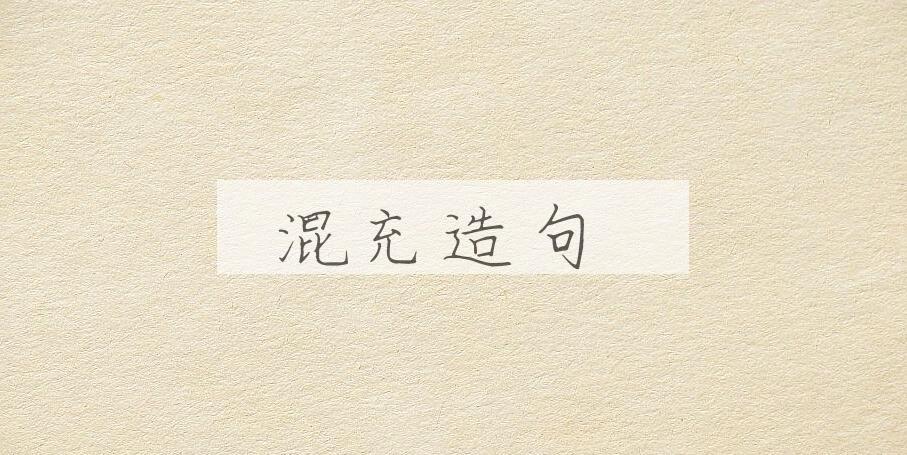 混充造句